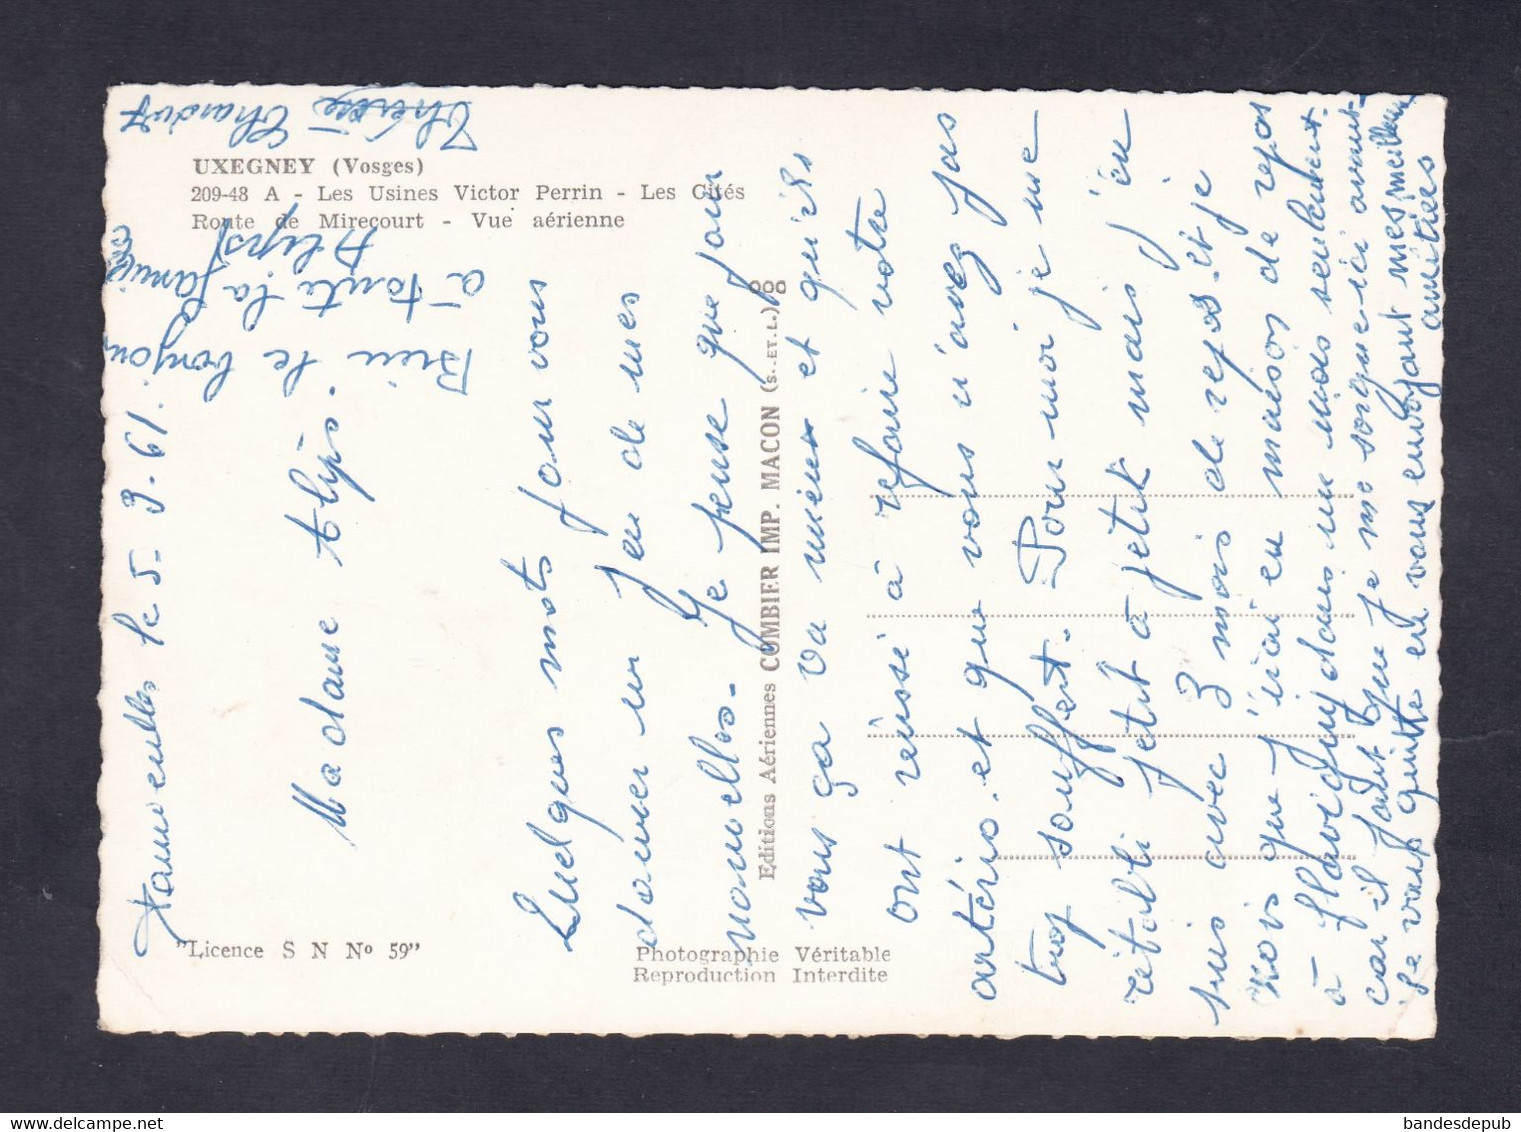 UXEGNEY (Vosges)
209-48 A - Les Usines Victor Perrin - Les Cités
Route de Mirecourt - Vue aérienne
"Licence S N Nº 59"
Photographie Véritable
Reproduction Interdite
Editions Aériennes COMBIER IMP. MACON (S.-ET-L.)
le 5-3-61.
Madame Alips.
Quelques mots pour vous
donner un peu de mes
nouvelles. Je pense que pour
vous ça va mieux et qu'ils
ont réussi à refaire votre
artério. et que vous n'avez pas
trop souffert. Pour moi je me
rétabli petit à petit mais j'en
suis avec 3 mois de repos. et je
crois que j'irai en maison de repos
à Flavigny dans un mois seulement.
car il faut que je me soigne ici avant.
Je vous quitte en vous envoyant mes meilleures
amitiées
Bien le bonjour
à toute la famille
Alips
Thérèse
bandesdepub